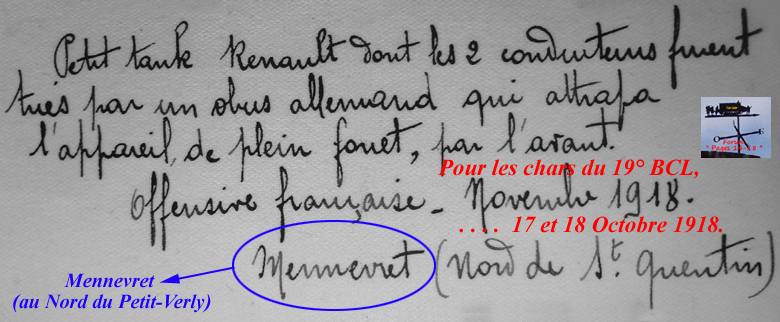 Petit tank Renault dont les 2 conducteurs furent
tués par un obus allemand qui attrapa
l'appareil, de plein fouet, par l'avant.
Pour les chars du 19° BCL,
Offensive française - Novembre 1918.
. . . . 17 et 18 Octobre 1918.
Mennevret (Nord de St. Quentin)
Mennevret
(au Nord du Petit-Verly)
Forum
" Pages 14 - 18 "